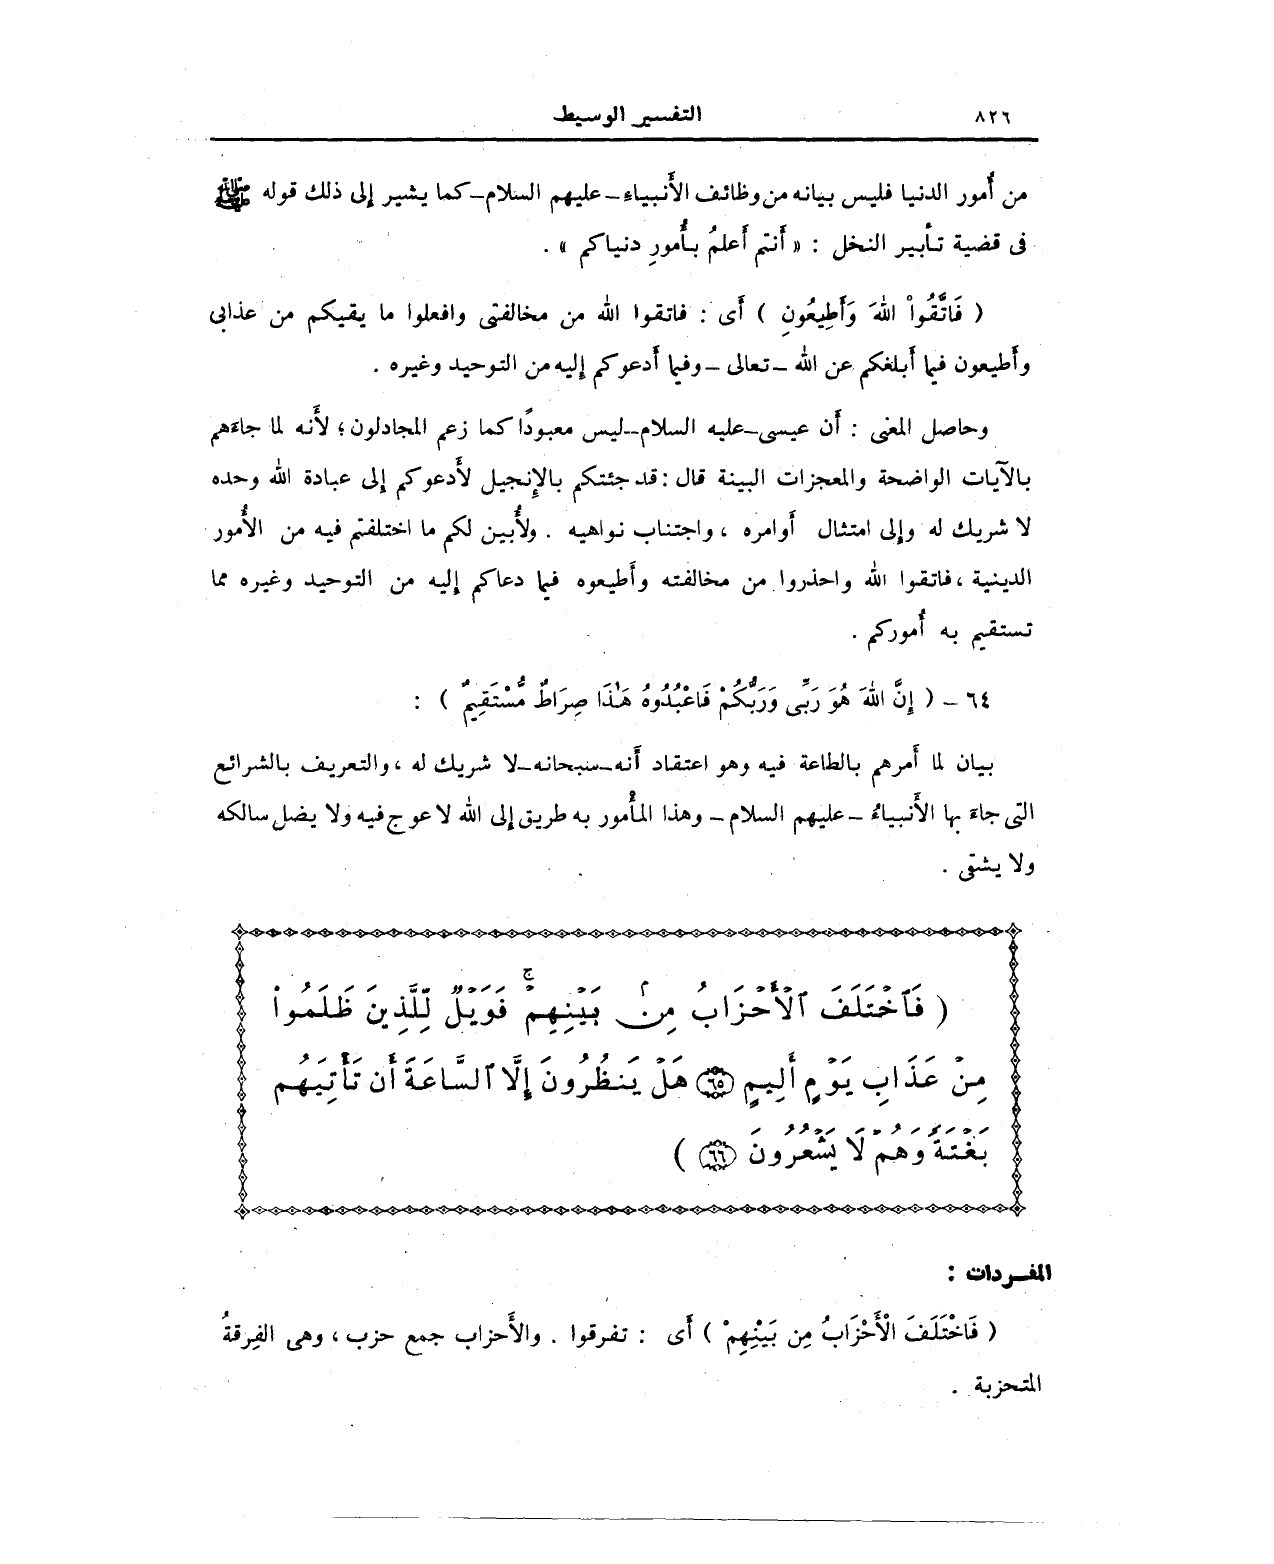 ٨٢٦
التفسير الوسيط
من أُمور الدنيا فليس بيانه من وظائف الأَنبياءِ – عليهم السلام – كما يشير إلى ذلك قوله ﷺ
فى قضية تأْبير النخل : « أَنتم أَعلمُ بأُمورِ دنياكم » .
( فَاتَّقُواْ اللهَ وَأَطِيعُونِ ) أَى : فاتقوا الله من مخالفتى وافعلوا ما يقيكم من عذابى
وأَطيعون فيما أبلغكم عن الله – تعالى – وفيما أَدعوكم إليه من التوحيد وغيره .
وحاصل المعنى : أَن عيسى – عليه السلام – ليس معبودًا كما زعم المجادلون ؛ لأَنه لما جاءَهم
بالآيات الواضحة والمعجزات البينة قال : قد جئتكم بالإنجيل لأَدعوكم إلى عبادة الله وحده
لا شريك له وإلى امتثال أَوامره ، واجتناب نواهيه . ولأُبين لكم ما اختلفتم فيه من الأُمور
الدينية ، فاتقوا الله واحذروا من مخالفته وأَطيعوه فيما دعاكم إليه من التوحيد وغيره مما
تستقيم به أُموركم .
٦٤ – ( إِنَّ اللهَ هُوَ رَبِّى وَرَبُّكُمْ فَاعْبُدُوهُ هَٰذَا صِرَاطٌ مُّسْتَقِيمٌ ) :
بيان لما أَمرهم بالطاعة فيه وهو اعتقاد أَنه – سبحانه – لا شريك له ، والتعريف بالشرائع
التى جاءَ بها الأَنبياءُ – عليهم السلام – وهذا المأْمور به طريق إلى الله لا عوج فيه ولا يضل سالكه
ولا يشقى .
( فَٱخْتَلَفَ ٱلْأَحْزَابُ مِنۢ بَيْنِهِمْ ۖ فَوَيْلٌ لِّلَّذِينَ ظَلَمُوا۟
مِنْ عَذَابِ يَوْمٍ أَلِيمٍ ٦٥ هَلْ يَنظُرُونَ إِلَّا ٱلسَّاعَةَ أَن تَأْتِيَهُم
بَغْتَةً وَهُمْ لَا يَشْعُرُونَ ٦٦ )
المفـردات :
( فَاخْتَلَفَ الْأَحْزَابُ مِن بَيْنِهِمْ ) أَى : تفرقوا . والأَحزاب جمع حزب ، وهى الفِرقةُ
المتحزبة .